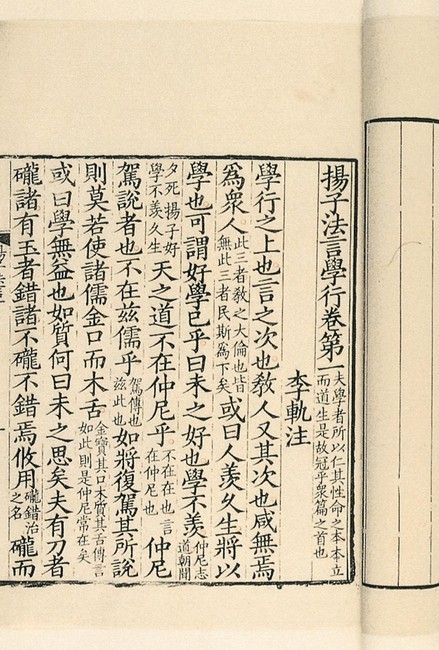 揚子法言學行卷第一夫學者所以仁其性命之本本立而道生是故冠乎衆篇之首也
李軌注
學行之上也言之次也敎人又其次也咸無焉
爲衆人此三者敎之大倫也皆無此三者民斯爲下矣或曰人羨久生將以
學也可謂好學已乎曰未之好也學不羨仲尼志道朝聞
夕死揚子好學不羨久生天之道不在仲尼乎不在在也言在仲尼也仲尼
駕說者也不在兹儒乎駕傳也兹此也如將復駕其所說
則莫若使諸儒金口而木舌金寶其口木質其舌傳言如此則是仲尼常在矣
或曰學無益也如質何曰未之思矣夫有刀者
礲諸有玉者錯諸不礲不錯焉攸用礲錯治之名礲而